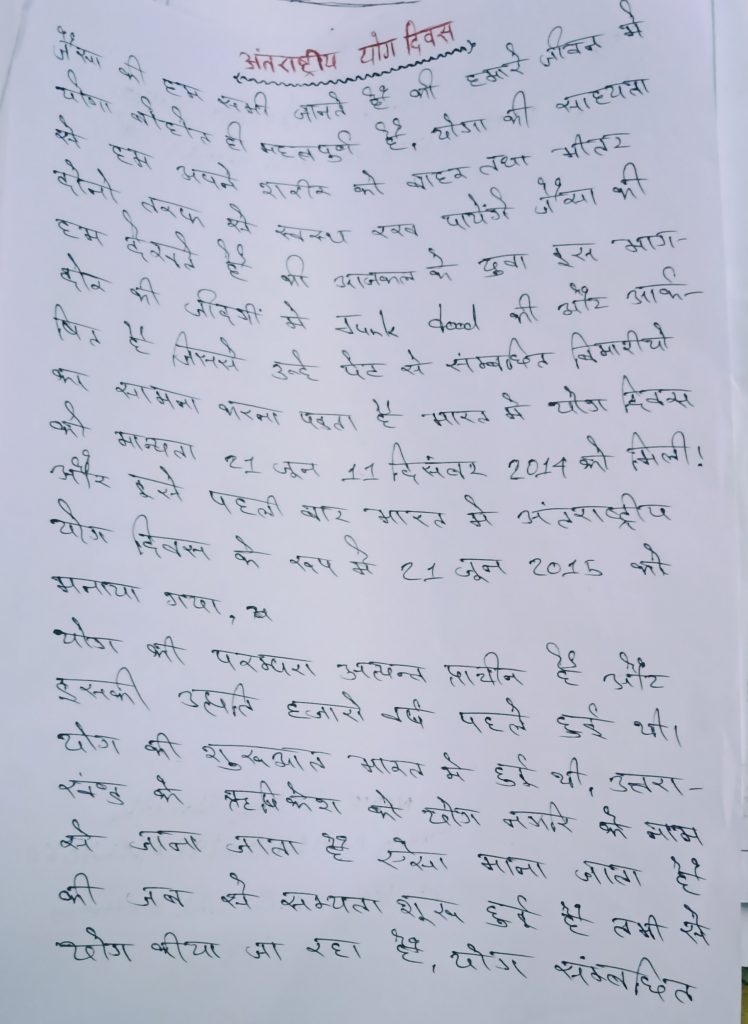 अंतराष्ट्रीय योग दिवस
जैसा की हम सभी जानते है की हमारे जीवन मे
योगा बोहोत ही महत्वपूर्ण है, योगा की साहयता
से हम अपने शरीर को बाहर तथा भीतर
दोनो तरफ से स्वस्थ रख पायेंगे जैसा की
हम देखते है की आजकल के युवा इस भाग-
दोर की जींदगीं मे Junk food की और आर्क-
षित है जिससे उन्हे पेट से संम्बधित बिमारीयो
का सामना करना पड़ता है भारत मे योग दिवस
को मान्यता 21 जून 11 दिसंबर 2014 को मिली!
और इसे पहली बार भारत मे अंतराष्ट्रीय
योग दिवस के रूप मे 21 जून 2015 को
मनाया गया,
योग की परम्परा अत्यन्त प्राचीन है और
इसकी उत्पति हजारो वर्ष पहले हुई थी।
योग की शुरूआत भारत मे हुई थी, उत्तरा-
खंड के ऋषिकेश को योग नगरि के नाम
से जाना जाता है ऐसा माना जाता है
की जब से सभ्यता शूरू हुई है तभी से
योग कीया जा रहा है, योग संम्बधित